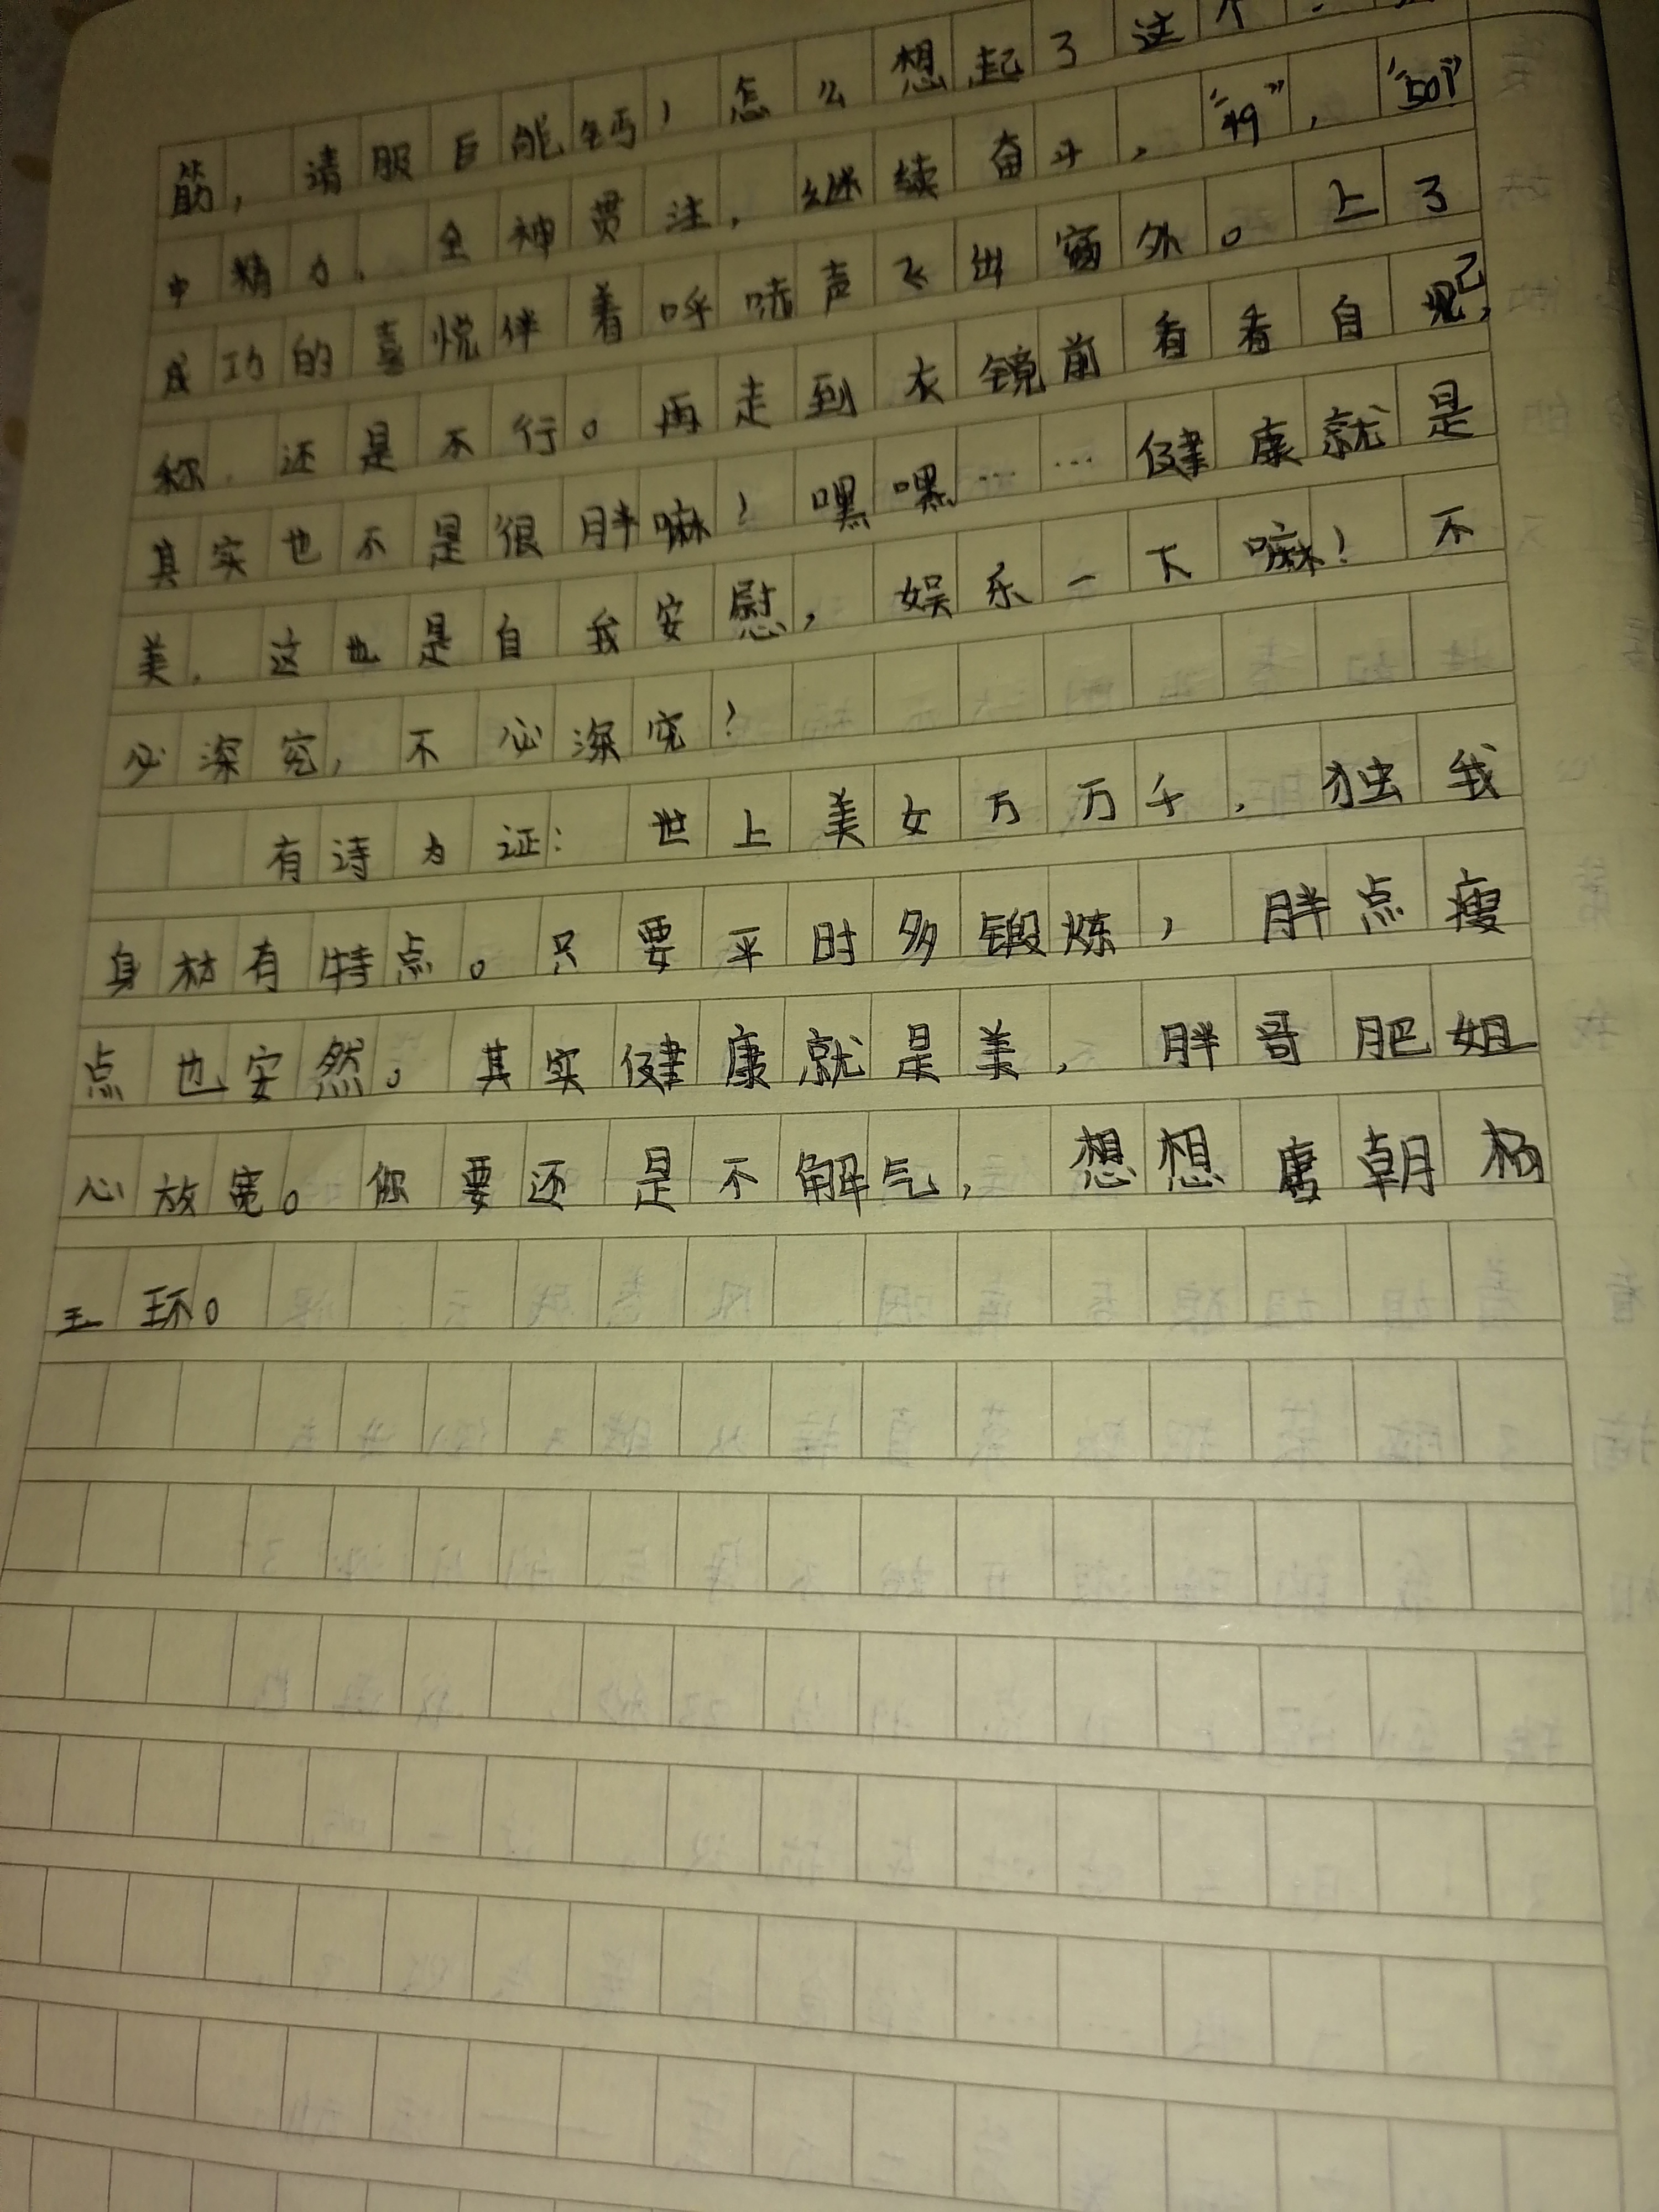 筋，请服巨能钙，怎么想起了这个
中精力，全神贯注，继续奋斗，“49”，“50！”
成功的喜悦伴着呼哧声飞出窗外。上了
称，还是不行。再走到衣镜前看看自己，
其实也不是很胖嘛！嘿嘿……健康就是
美，这也是自我安慰，娱乐一下嘛！不
必深究，不必深究！
有诗为证：世上美女万万千，独我
身材有特点。只要平时多锻炼，胖点瘦
点也安然。其实健康就是美，胖哥肥姐
心放宽。你要还是不解气，想想唐朝杨
玉环。